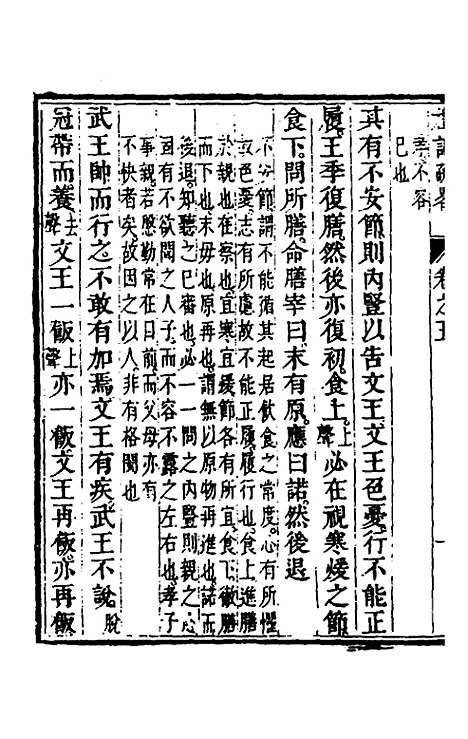 記疏畧 卷之五 一
不容
已也
其有不安節則內豎以告文王文王色憂行不能正
履王季復膳然後亦復初食上上聲必在視寒煖之節
食下問所膳命膳宰曰末有原應曰諾然後退
不安節謂不能循其起居飲食之常度心有所惺
故色憂志有所慮故不能正履履行也食上進膳
於親也在察也宜寒宜煖節各有所宜食下徹膳
而下也末毋也原再也謂無以原物再進也諾而
後退知聽之已審也必一一問之內豎則親之心
固有不欲聞之人子而不容不露之左右也孝子
事親若慇勤常在目前而父母亦有
不快者矣故因之以人非有格閡也
武王帥而行之不敢有加焉文王有疾武王不說脫
冠帶而養去聲文王一飯上聲亦一飯文王再飯亦再飯